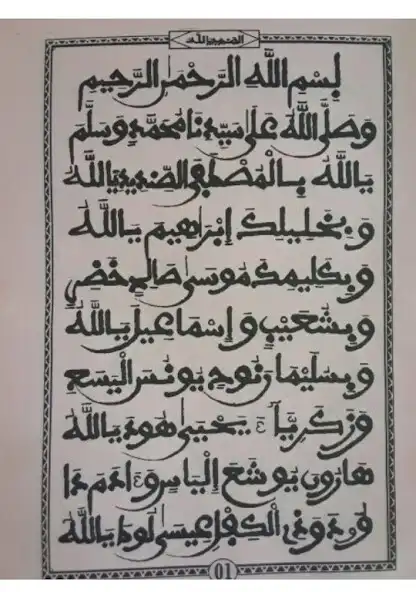 بِسْمِ اللَّهِ الرَّحْمَٰنِ الرَّحِيمِ
وَصَلَّى اللَّهُ عَلَى سَيِّدِنَا مُحَمَّدٍ وَسَلَّمَ
يَا اللَّهُ بِالْمُصْطَفَى يَا اللَّهُ
وَبِخَلِيلِكَ إِبْرَاهِيمَ يَا اللَّهُ
وَبِكَلِيمِكَ مُوسَى صَالِحٍ خَضِرٍ
وَبِشُعَيْبٍ وَإِسْمَاعِيلَ يَا اللَّهُ
وَبِسُلَيْمَانَ نُوحٍ يُونُسَ الْيَسَعِ
وَزَكَرِيَّاءَ يَحْيَى هُودٍ يَا اللَّهُ
هَارُونَ يُوشَعَ إِلْيَاسٍ وَءَادَمَ
وَذِي الْكِفْلِ عِيسَى لُوطٍ يَا اللَّهُ
01